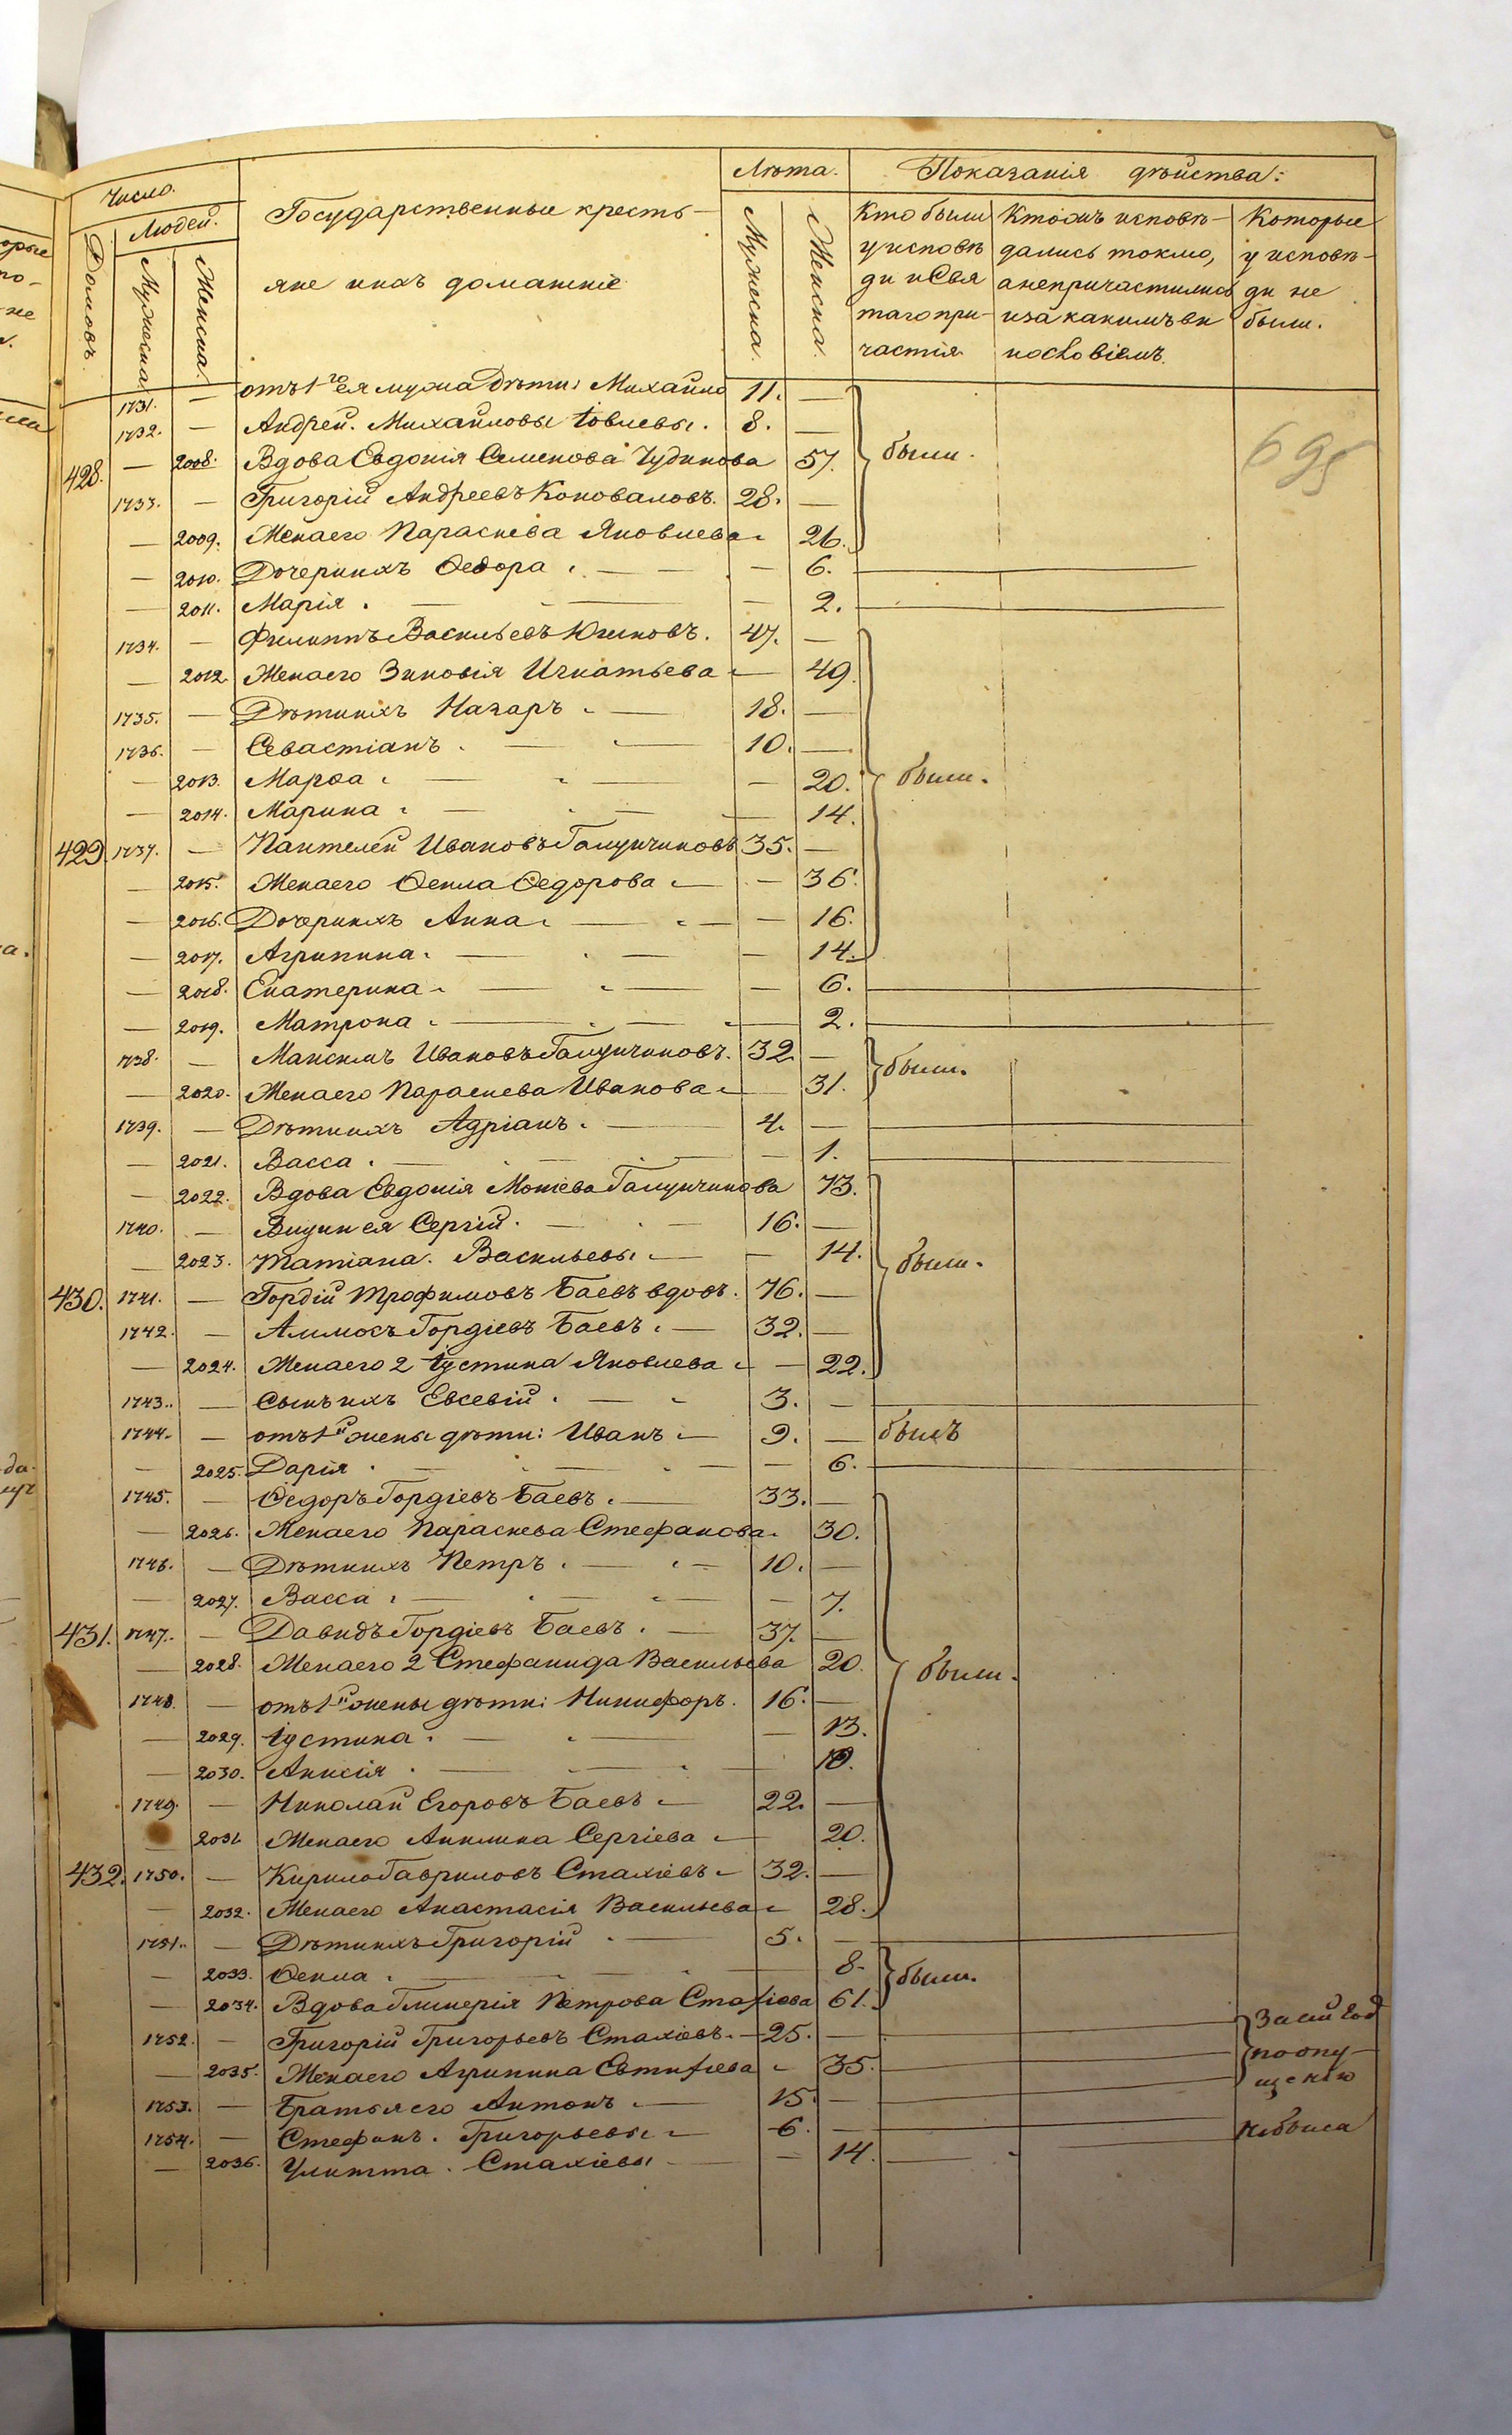 Число.
Людей.
Домовъ.
Мужеска.
Женска.
Государственные кресть-
яне ихъ домашніе
Лѣта.
Мужеска.
Женска.
Показанія дѣйства:
Кто были
у исповѣ
ди и Свя
таго при-
частія
Ктожъ исповѣ-
дались токмо,
а непричастились
и за какимъ ви
нословіемъ.
Которые
у исповѣ-
ди не
были.
695
1731. — отъ 1го ея мужа Дѣти: Михайло 11. —
1732. — Андрей. Михайловы Іовлевы. 8. —
428. — 2008. Вдова Евдокія Семенова Чудинова 57. были.
1733. — Григорій Андреевъ Коноваловъ. 28. —
— 2009. Жена его Параскева Яковлева 26.
— 2010. Дочери ихъ Ѳедора — 6.
— 2011. Марія. — 2.
1734. — Филиппъ Васильевъ Югиновъ. 47. —
— 2012. Жена его Зиновія Игнатьева — 49.
1735. — Дѣти ихъ Назаръ 18. —
1736. — Севастіанъ. 10. —
— 2013. Марѳа — 20. были.
— 2014. Марина — 14.
429. 1737. — Пантелей Ивановъ Галунчиковъ 35. —
— 2015. Жена его Ѳекла Ѳедорова — 36.
— 2016. Дочери ихъ Анна — 16.
— 2017. Агрипина. — 14.
— 2018. Екатерина — 6.
— 2019. Матрона — 2.
1738. — Максимъ Ивановъ Галунчиковъ. 32. —
— 2020. Жена его Параскева Иванова — 31. были.
1739. — Дѣти ихъ Адріанъ. 4. —
— 2021. Васса. — 1.
— 2022. Вдова Евдокія Мокіева Галунчикова 73.
1740. — Внуки ея Сергій. 16. —
— 2023. Татіана. Васильевы — 14. были.
430. 1741. — Гордій Трофимовъ Баевъ вдовъ. 76. —
1742. — Аммосъ Гордіевъ Баевъ. 32. —
— 2024. Жена его 2 Іустина Яковлева — 22.
1743. — Сынъ ихъ Евсевій. 3. —
1744. — отъ 1й жены дѣти: Иванъ 9. — былъ
— 2025. Дарія. — 6.
1745. — Ѳедоръ Гордіевъ Баевъ. 33. —
— 2026. Жена его Параскева Стефанова. 30.
1746. — Дѣти ихъ Петръ. 10. —
— 2027. Васса — 7.
431. 1747. — Давидъ Гордіевъ Баевъ. 37. —
— 2028. Жена его 2 Стефанида Васильева 20. были.
1748. — отъ 1й жены дѣти: Никифоръ. 16. —
— 2029. Іустина. — 13.
— 2030. Анисія. 10.
1749. — Николай Егоровъ Баевъ 22. —
2031. Жена его Акилина Сергіева — 20.
432. 1750. — Кирило Гавриловъ Стахіевъ 32. —
— 2032. Жена его Анастасія Васильева 28.
1751. — Дѣти ихъ Григорій 5. —
— 2033. Ѳекла. — 8. были.
— 2034. Вдова Гликерія Петрова Стахіева 61.
1752. — Григорій Григорьевъ Стахіевъ. 25. — За сій год
— 2035. Жена его Агрипина Евтихіева 35. по опу-
1753. — Братья его Антонъ. 15. — щенію
1754. — Стефанъ. Григорьевы 6. — небыла
— 2036. Улитта. Стахіевы — 14.